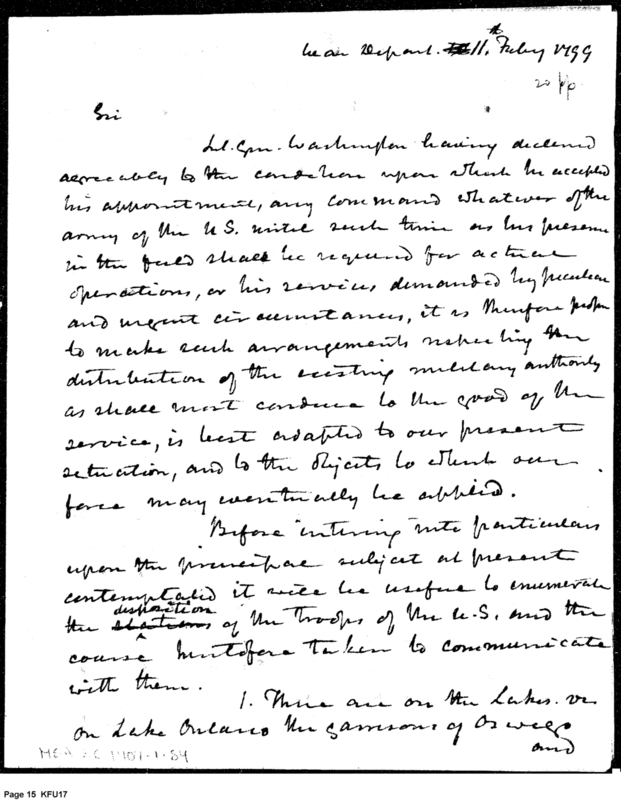 War Depart. 11th. Feby 1799
20 pp
Sir
Lt. Gen. Washington having declined
agreeably to the condition upon which he accepted
his appointment, any command whatever of the
army of the U.S. until such time as his presence
in the field shall be required for actual
operations, or his services demanded by peculiar
and urgent circumstances, it is therefore proper
to make such arrangements respecting the
distribution of the existing military authority
as shall most conduce to the good of the
service, is best adapted to our present
situation, and to the objects to which our
force may eventually be applied.
Before entering into particulars
upon the principal subject at present
contemplated it will be useful to enumerate
disposition
the stations of the Troops of the U.S. and the
course heretofore taken to communicate
with them.
1. There are on the Lakes. viz
on Lake Ontario the garrisons of Oswego
and
Page 15 KFU17